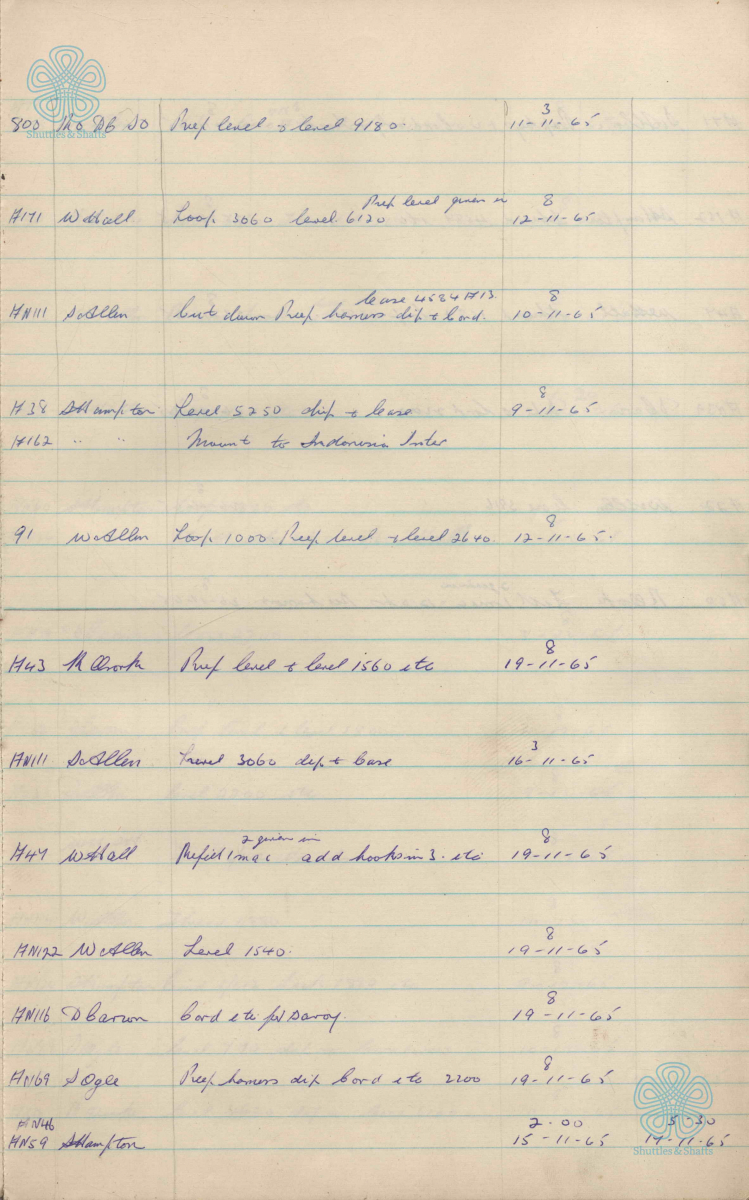 3
800 Do Db Do Prep level & level 9180. 11-11-65
Shuttles & Shafts
Prep level given in 8
W Hall Loop 3060 level 6120 12-11-65
lease 4584 8
HN111 S Allen Cut down Prep harness dip & Cord. 10-11-65
8
H38 S Hampton Level 5250 dip & lease 9-11-65
H162 " " Mount to Indonesia Inter
8
91 W Allen Loop 1000 Prep level & level 2640. 12-11-65.
8
H43 Prep level & level 1560 etc 19-11-65
3
HN111 S Allen Level 3060 dip & lease 16-11-65
2 given in 8
H47 W Hall Refix 1 mac add hooks in 3. etc 19-11-65
8
HN122 W Allen Level 1540. 19-11-65
8
HN116 D Carson Cord etc for Savoy. 19-11-65
8
HN169 S Ogle Prep harness dip Cord etc 2200 19-11-65
HN46 2.00 5-30
HN59 S Hampton 15-11-65 17-11-65
Shuttles & Shafts